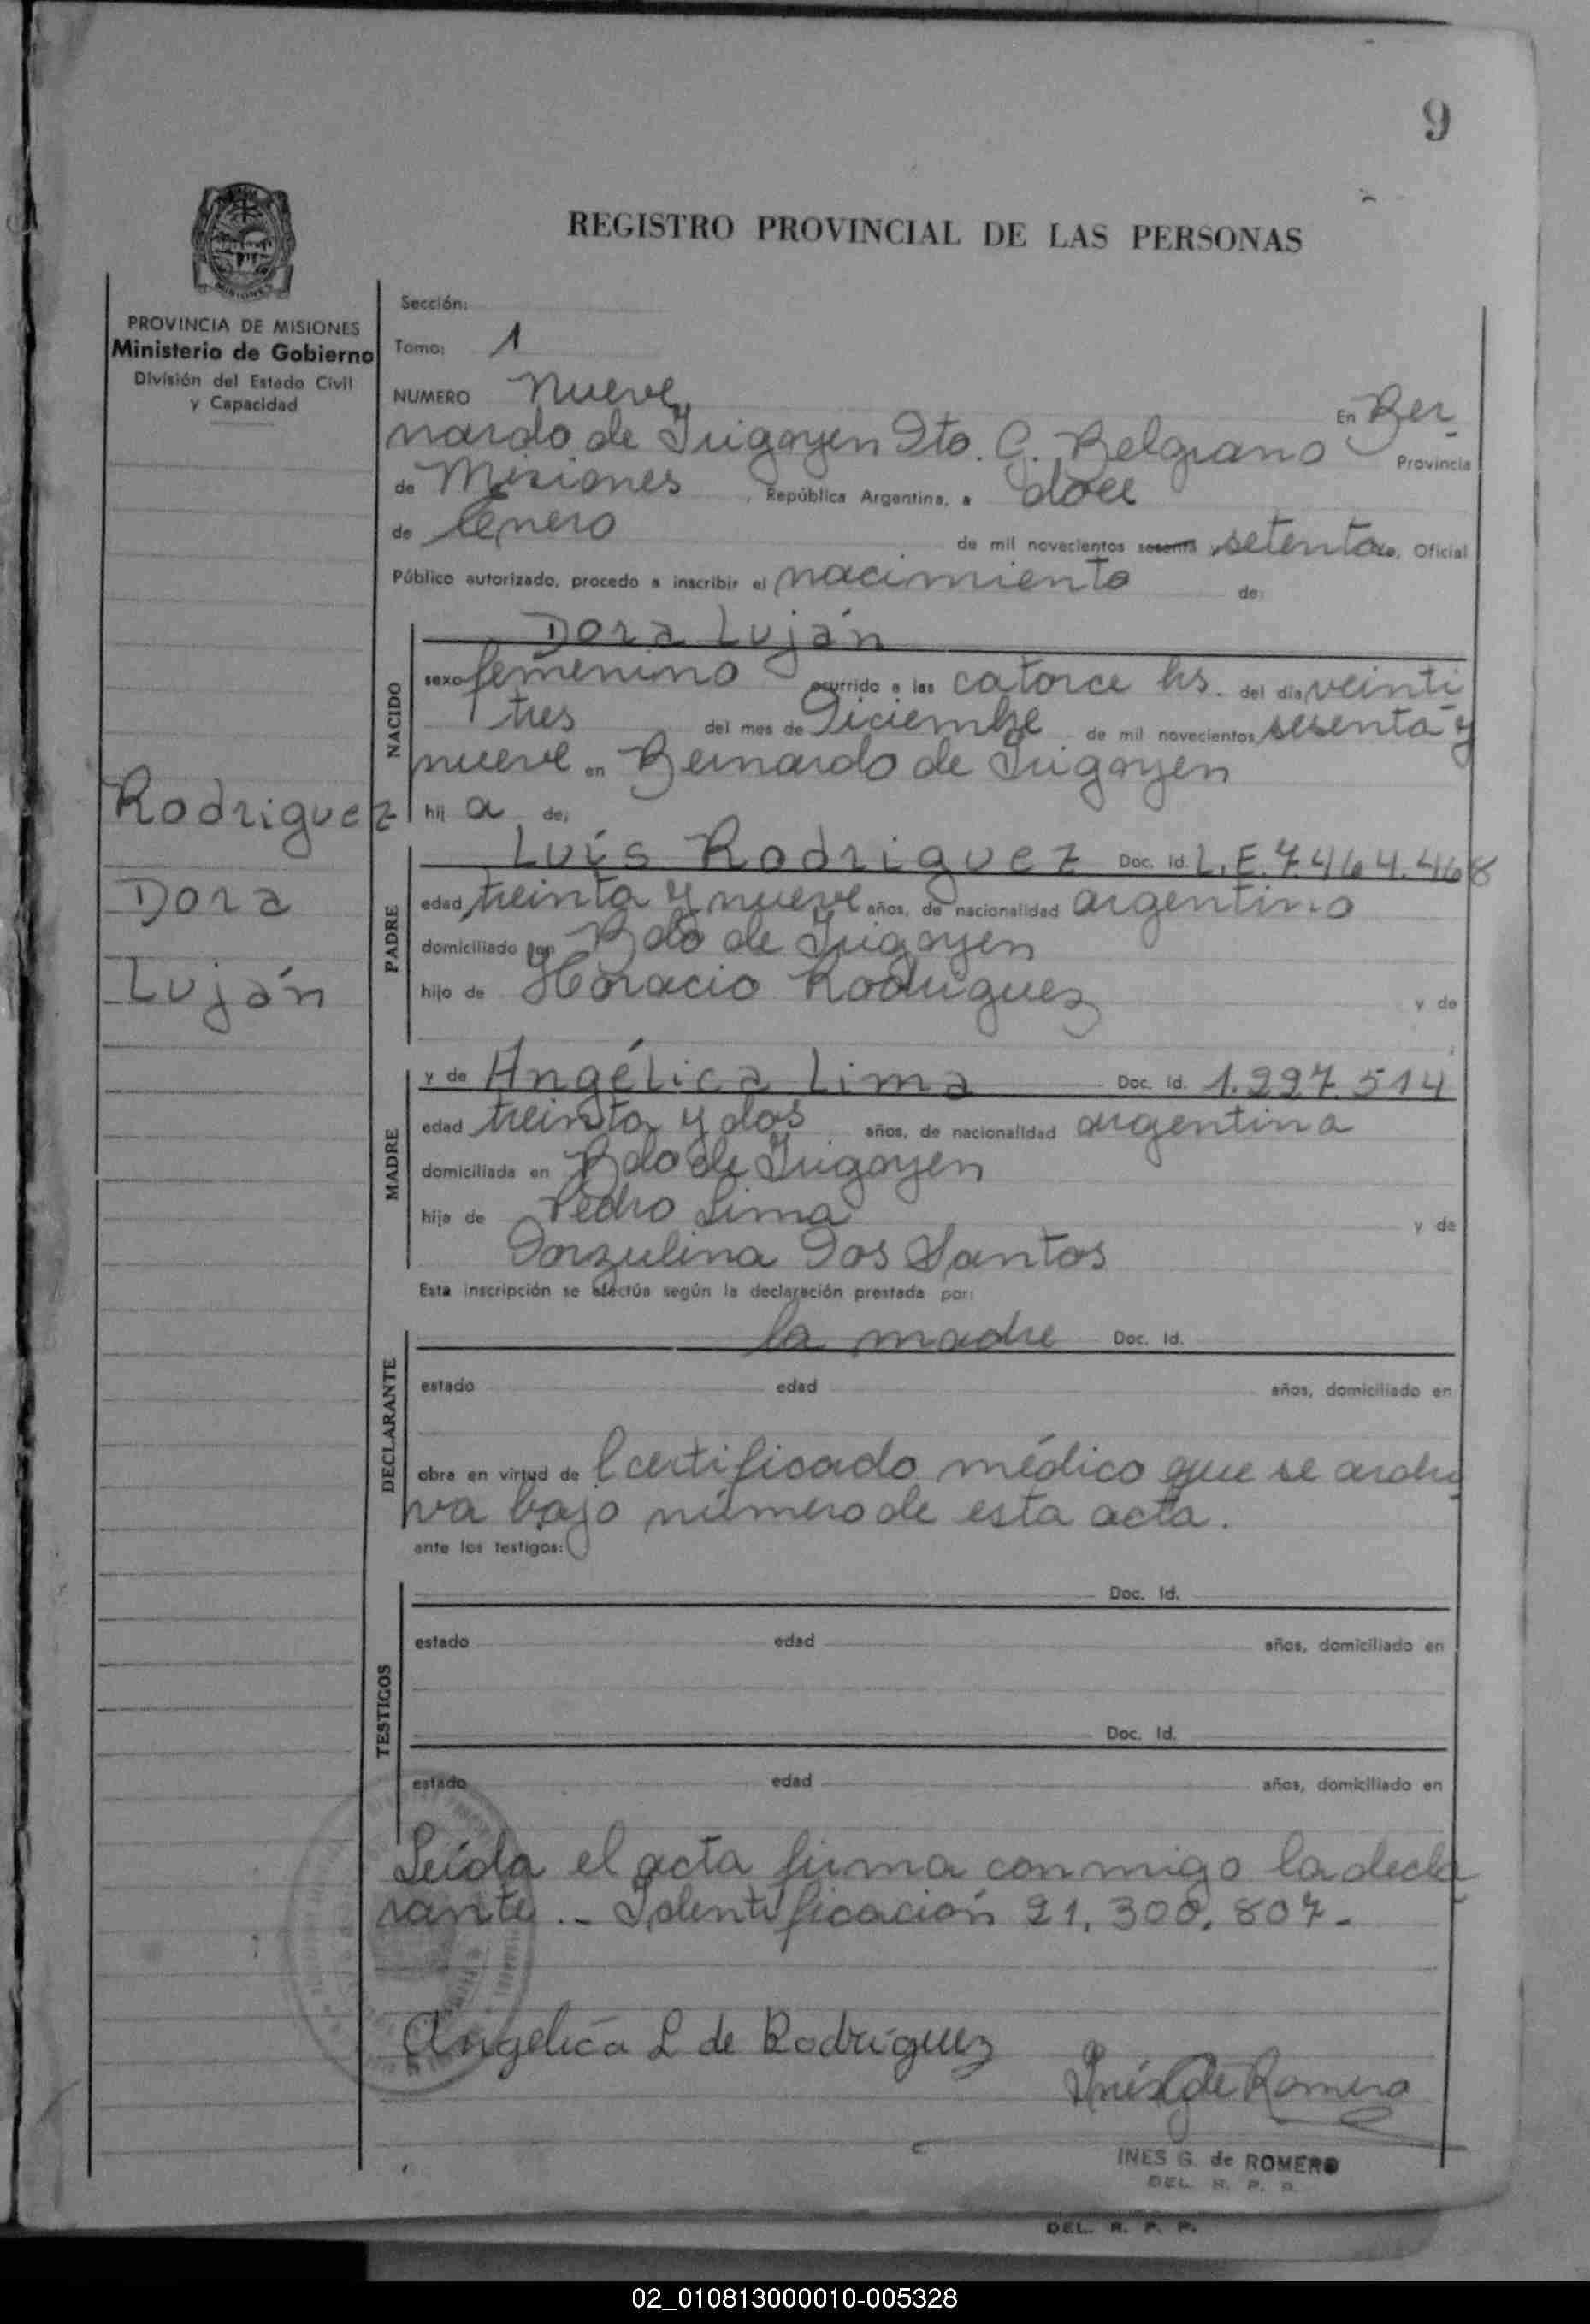 9
REGISTRO PROVINCIAL DE LAS PERSONAS
MISIONES
PROVINCIA DE MISIONES
Ministerio de Gobierno
División del Estado Civil
y Capacidad
Rodriguez
Dora
Luján
Sección:
Tomo: 1
NUMERO nueve En Ber
nardo de Irigoyen Dto. G. Belgrano Provincia
de Misiones, República Argentina, a doce
de Enero de mil novecientos sesenta setenta, Oficial
Público autorizado, procedo a inscribir el nacimiento de:
NACIDO
Dora Luján
sexo femenino ocurrido a las catorce hs. del día veinti
tres del mes de Diciembre de mil novecientos sesenta y
nueve en Bernardo de Irigoyen
hij a de:
PADRE
Luís Rodriguez Doc. Id. L.E. 7.464.468
edad treinta y nueve años, de nacionalidad argentino
domiciliado en Bdo de Irigoyen
hijo de Horacio Rodriguez y de
MADRE
y de Angélica Lima Doc. Id. 1.297.514
edad treinta y dos años, de nacionalidad argentina
domiciliada en Bdo de Irigoyen
hija de Pedro Lima y de
Dorzulina Dos Santos
Esta inscripción se efectúa según la declaración prestada por:
DECLARANTE
la madre Doc. Id.
estado edad años, domiciliado en
obra en virtud de l certificado médico que se archi
va bajo número de esta acta.
ante los testigos:
TESTIGOS
Doc. Id.
estado edad años, domiciliado en
Doc. Id.
estado edad años, domiciliado en
Leída el acta firma conmigo la decla
rante.- Identificación 21.300.807.-
Angelica L de Rodríguez
Inés G de Romero
INES G. de ROMERO
DEL. R. P. P.
DEL. R. P. P.
02_010813000010-005328